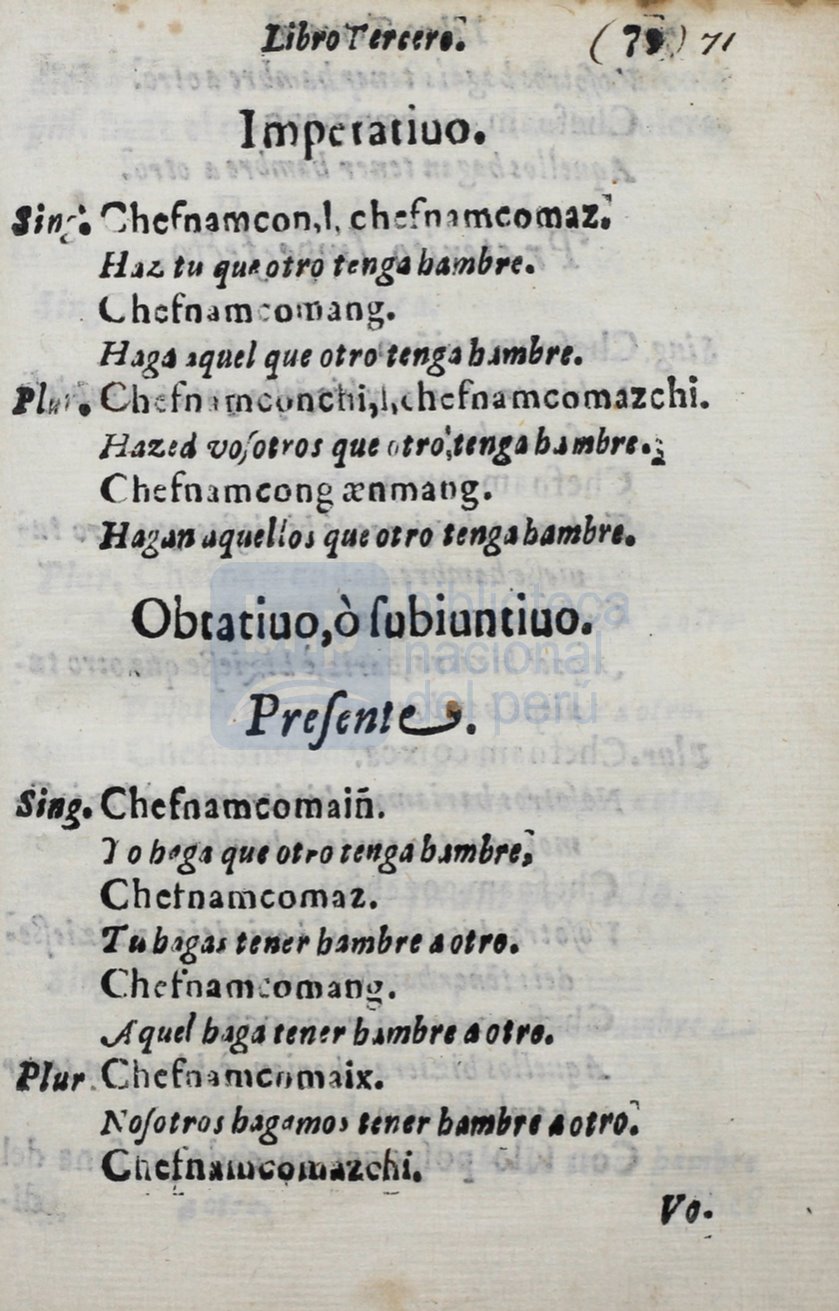 Libro Tercero. (79) 71
Imperatiuo.
Sing. Chefnamcon,l, chefnamcomaz.
Haz tu que otro tenga hambre.
Chefnamcomang.
Haga aquel que otro tenga hambre.
Plur. Chefnamconchi,l,chefnamcomazchi.
Hazed voſotros que otro,tenga hambre.
Chefnamcong ænmang.
Hagan aquellos que otro tenga hambre.
Obtatiuo,ò ſubiuntiuo.
Preſente.
Sing. Chefnamcomaiñ.
Yo haga que otro tenga hambre,
Chefnamcomaz.
Tu hagas tener hambre a otro.
Chefnamcomang.
Aquel haga tener hambre a otro.
Plur. Chefnamcomaix.
Noſotros hagamos tener hambre a otro.
Chefnamcomazchi.
Vo.
biblioteca
nacional
del perú